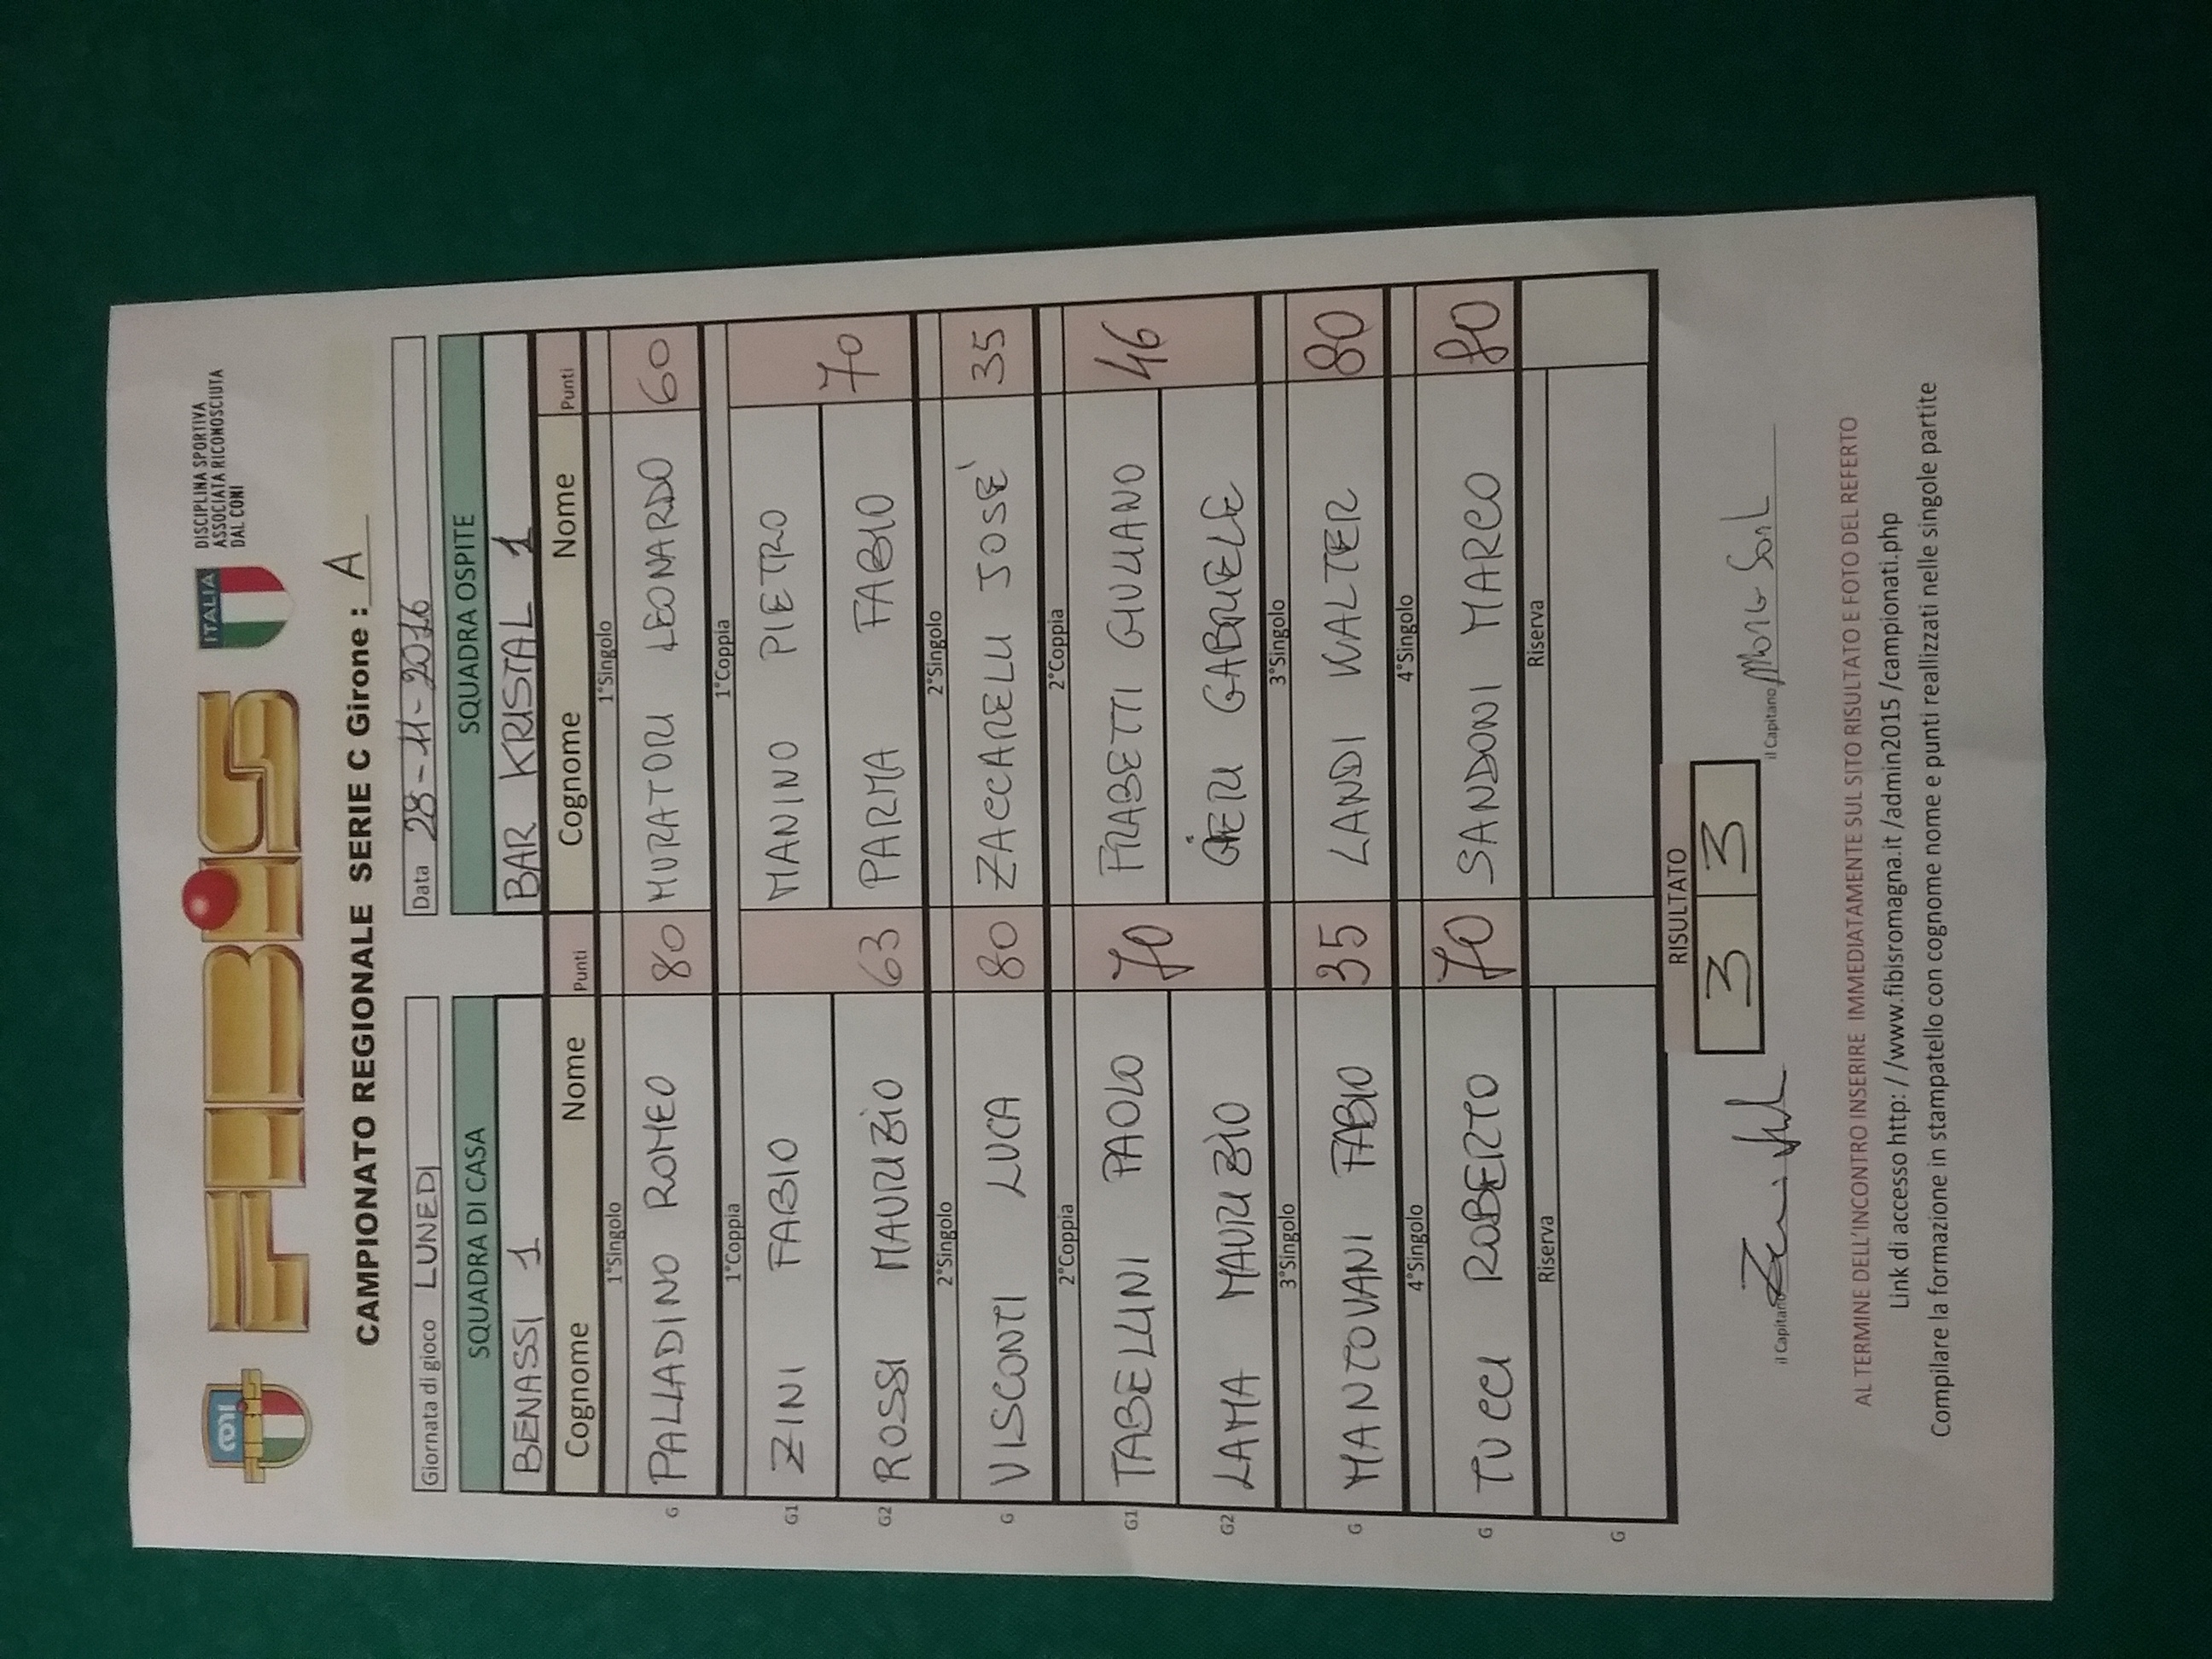 FIBiS
ITALIA
DISCIPLINA SPORTIVA
ASSOCIATA RICONOSCIUTA
DAL CONI
CAMPIONATO REGIONALE SERIE C Girone : A
Giornata di gioco LUNEDI Data 28-11-2016
SQUADRA DI CASA SQUADRA OSPITE
BENASSI 1 BAR KRISTAL 1
Cognome Nome Punti Cognome Nome Punti
1°Singolo 1°Singolo
G PALLADINO ROMEO 80 MURATORI LEONARDO 60
1°Coppia 1°Coppia
G1 ZINI FABIO MANINO PIETRO
G2 ROSSI MAURIZIO 63 PARMA FABIO 70
2°Singolo 2°Singolo
G VISCONTI LUCA 80 ZACCARELLI JOSE' 35
2°Coppia 2°Coppia
G1 TABELLINI PAOLO 70 FRABETTI GIULIANO 46
G2 LAMA MAURIZIO GABRIELE
3°Singolo 3°Singolo
G MANTOVANI FABIO 35 LANDI WALTER 80
4°Singolo 4°Singolo
G TUCCI ROBERTO 70 SANDONI MARCO 80
Riserva Riserva
G
RISULTATO
3 3
il Capitano il Capitano
AL TERMINE DELL'INCONTRO INSERIRE IMMEDIATAMENTE SUL SITO RISULTATO E FOTO DEL REFERTO
Link di accesso http: / /www.fibisromagna.it /admin2015 /campionati.php
Compilare la formazione in stampatello con cognome nome e punti realizzati nelle singole partite